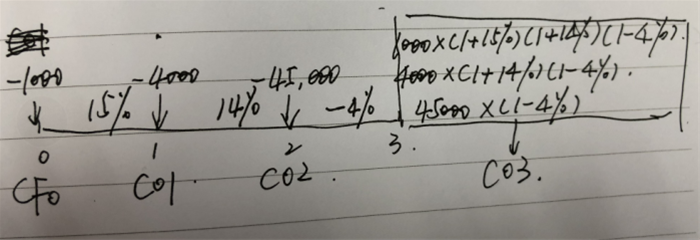 1000×(1+15%)(1+14%)(1-4%).
-1000 -4000 -45,000 4000×(1+14%)(1-4%).
15% 14% -4% 45000×(1-4%)
0 1 2 3.
CF0 CO1. CO2. CO3.